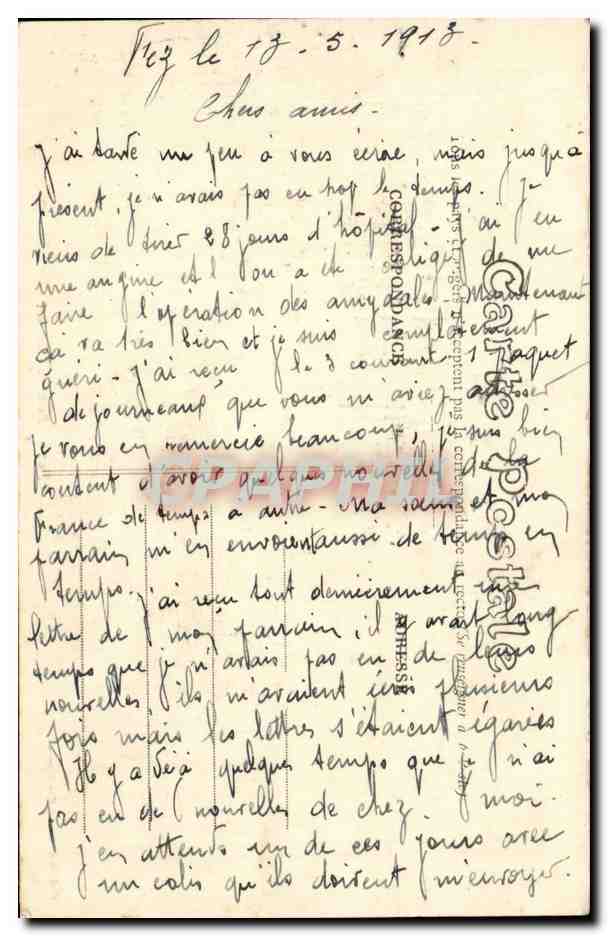 Fez le 13. 5. 1913.
Chers amis.
J'ai tardé un peu à vous écrire, mais jusqu'à
présent, je n'avais pas eu trop le temps. Je
viens de tirer 28 jours d'hôpital. J'ai eu
une angine et l'on a été obligé de me
faire l'opération des amygdales. Maintenant
ça va très bien et je suis complètement
guéri. J'ai reçu le 3 courant 1 paquet
de journeaux que vous m'aviez adressé
je vous en remercie beaucoup, je suis bien
content d'avoir quelques nouvelles de la
France de temps à autre. Ma sœur et mon
parrain m'en envoient aussi de temps en
temps. J'ai reçu tout dernièrement une
lettre de mon parrain, il y avait long
temps que je n'avais pas eu de leurs
nouvelles, ils m'avaient écris plusieurs
fois mais les lettres s'étaient égarées
Il y a déjà quelques temps que je n'ai
pas eu de nouvelles de chez moi.
J'en attends un de ces jours avec
un colis qu'ils doivent m'envoyer.
Carte postale
CORRESPONDANCE
ADRESSE
Tous les pays étrangers n'acceptent pas la correspondance au recto. (Se renseigner à la Poste)
DELCAMPE